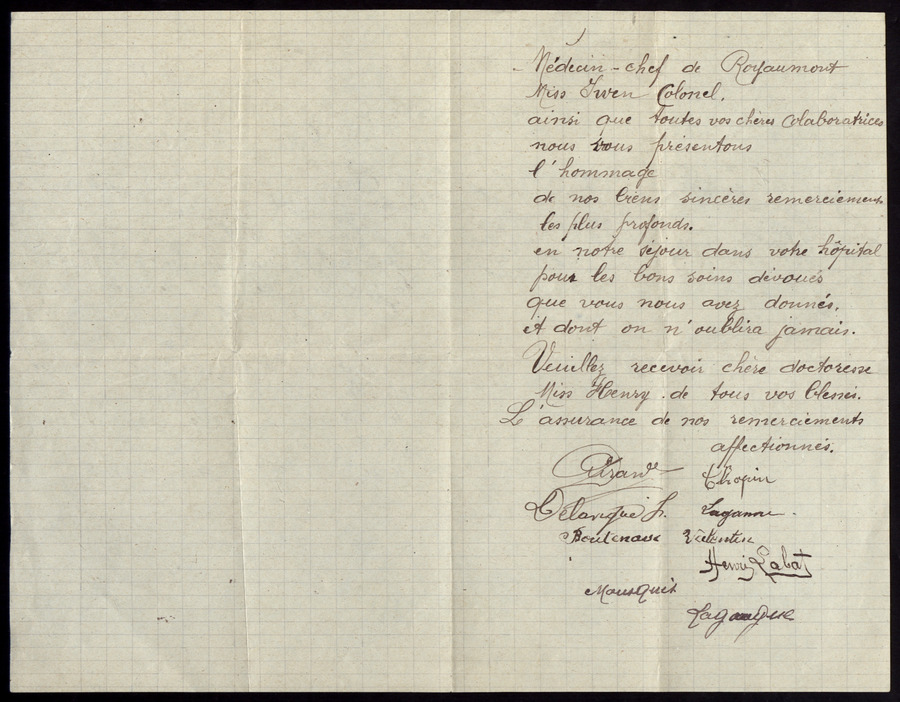 - Médecin-chef de Royaumont
Miss Iven Colonel.
ainsi que toutes vos chères colaboratrices
nous vous présentons
l'hommage
de nos biens sincères remerciements
les plus profonds.
en notre séjour dans votre hôpital
pour les bons soins dévoués
que vous nous avez donnés.
et dont on n'oublira jamais.
Veuillez recevoir chère doctoresse
Miss Henry. de tous vos blessés.
L'assurance de nos remerciements
affectionnés.
Chopin
Delanqué h.
Valentin
Henri Labat
Mousquis